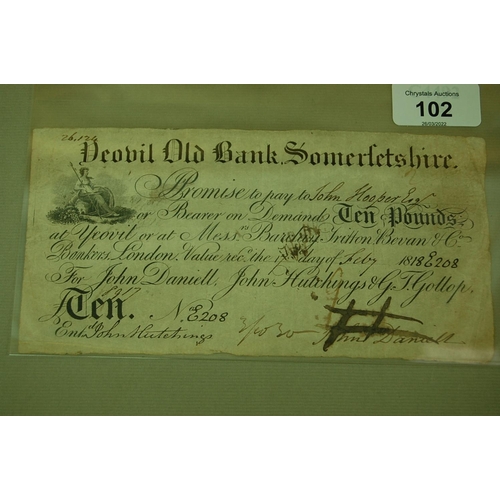 Chrystals Auctions
102
26/03/2022
26,124
Yeovil Old Bank, Somersetshire.
Promise to pay to John Hooper Esqr
or Bearer on Demand Ten Pounds
at Yeovil or at Messrs Barclay, Tritton, Bevan & Co
Bankers, London. Value recd. the day of Feby 1818 E208
For John Daniell, John Hutchings & G. T. Gollop.
£Ten. No E208
Entd John Hutchings John Daniell